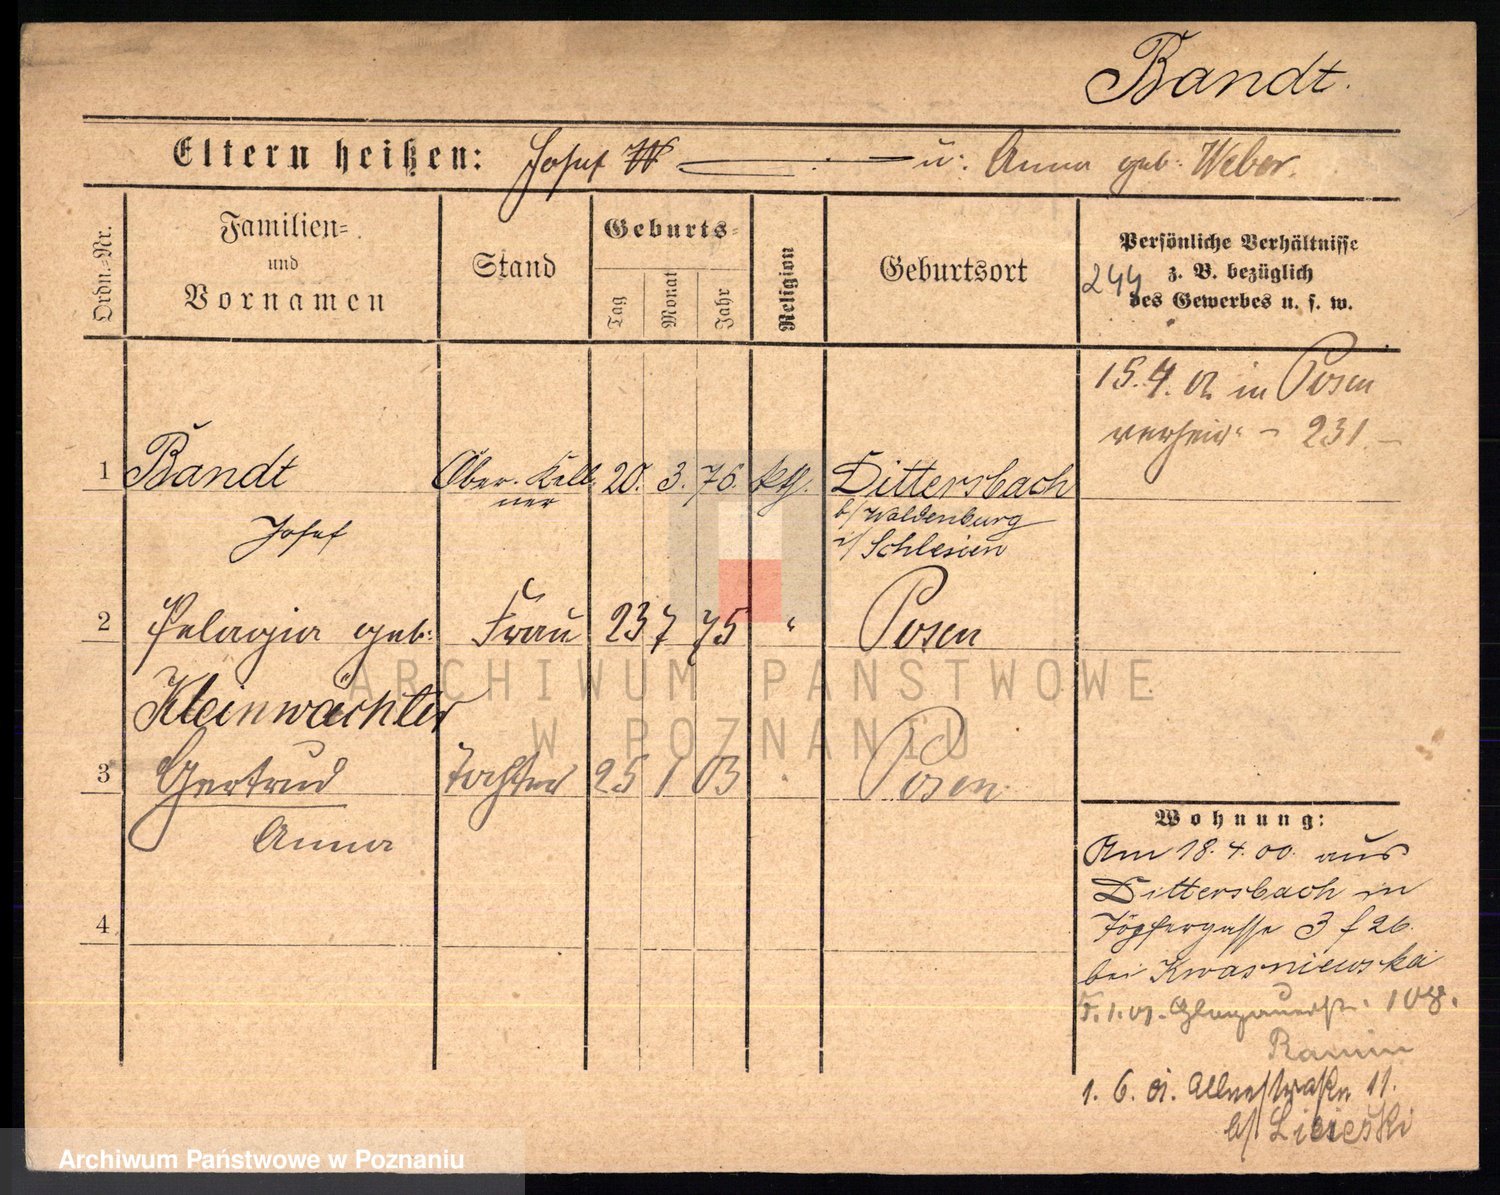 Bandt.
Eltern heißen: Josef u: Anna geb: Weber.
Ordn.-Nr.
Familien-
und
Vornamen
Stand
Geburts-
Tag
Monat
Jahr
Religion
Geburtsort
Persönliche Verhältnisse
z. B. bezüglich
des Gewerbes u. s. w.
244
15. 4. 02 in Posen
verheir. - 231 -
1 Bandt Ober-Kell- 20. 3. 76 ktl. Dittersbach
ner
b/ Waldenburg
Josef
i/ Schlesien
2 Pelagia geb: Frau 23 7 75 " Posen
Kleinwächter
3 Gertrud Tochter 25 1 03 " Posen.
Anna
4
Wohnung:
Am 18. 4. 00. aus
Dittersbach in
Töpfergasse 3 f 26.
bei Kwasniewska
5. 1. 01. Glogauerstr. 108.
Ramin
1. 6. 01. 11.
b/
ARCHIWUM PAŃSTWOWE
W POZNANIU
Archiwum Państwowe w Poznaniu